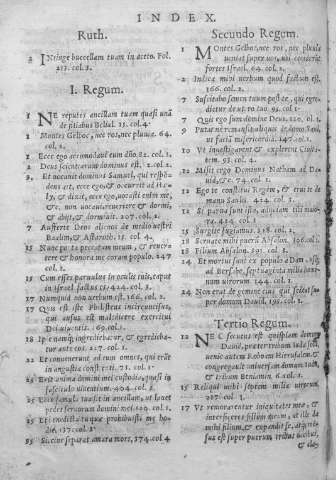 INDEX.
Ruth.
2 INtinge buccellam tuam in aceto. Fol.
213. col. 2.
I. Regum.
1 NE reputes ancillam tuam quasi unã
de filiabus Belial. 15. col. 4.
1 Montes Gelboe, nec ros, nec pluvia. 64.
col. 2.
2 Ecce ego accommodavi eum dño. 82. col. 2.
2 Deus scientiarum dominus est. 2. col. 2.
3 Et vocavit dominus Samuel, qui respõ-
dens ait, ecce ego, & cucurrit ad He-
ly, & dixit, ecce ego, vocasti enim me,
&c. non vocavi, revertere & dormi,
& abijt, & dormivit. 207. col. 2.
7 Auferte Deos alienos de medio vestri
Baalim, & Astaroth. 12. col. 4.
15 Nunc porta precor peccatum meum, & rever-
tere & honora me coram populo. 247.
col. 2.
15 Cum esses parvulus in oculis tuis, caput
in Israel factus es. 424. col. 3.
17 Nunquid non verbum est. 166. col. 2.
17 Quis est iste Philistæus incircuncisus,
qui ausus est maledicere exercitui
Dei viventis. 69. col.
18 Ipse namque ingrediebatur, & egredieba-
tur ante eos. 227. col. 1.
22 Et convenerunt ad eum omnes, qui erãt
in angustia constituti. 71. col. 1.
25 Erit anima domini mei custodita, quasi in
fasciculo viventium. 404. col. 2.
25 Ecce famula tua sit in ancillam, ut lavet
pedes servorum domini mei. 129. col. 2.
25 Et benedicta tu quæ prohibuisti me ho-
die. 137. col. 1.
35 Siccine separat amara mors. 374. col. 4
Secundo Regum.
1 MOntes Gelboe, nec ros, nec pluvia
veniat super vos, ubi ceciderunt
fortes Israel. 64. col. 2.
2 Indica mihi verbum quod factum est.
166. col. 2.
7 Suscitabo semen tuum post te, qui egre-
dietur de utero tuo. 95. col. 1.
7 Quis ego sum domine Deus. 220. col. 1.
9 Putas ne remansit aliquis de domo Saul,
ut faciã misericordiã. 247. col. 1.
10 Ut investigarent & explorent Civita-
tem. 93. col. 4.
12 Misit ergo Dominus Nathan ad Da-
vid, &c. 74. col. 1.
12 Ego te constitui Regem, & erui te de
manu Saulis. 424. col. 3.
12 Si parva sunt ista, adijciam tibi maio-
ra. 424. col. 3.
15 Surgite fugiamus. 218. col. 2.
18 Servate mihi puerũ Absalon. 106. col. 2.
18 Filium Absalon. 391. col. 2.
24 Et mortui sunt ex populo à Dan usq;
ad Bersabe, septuaginta millia homi-
num virorum. 144. col. 2.
24 Non erat de gente eius, qui solvet su-
per domum David. 195. col. 1.
Tertio Regum.
12 NEc secutus est quisquam domum
David, præter tribum Iuda solã
venit autem Roboam Hierusalem, &
congregavit universam domum Iuda,
& tribum Beniamin. 6. col. 1.
19 Reliqui mihi septem millia virorum
202. col. 1.
17 Ut rememorentur iniquitates meæ, &
interficeres filium meum, et ait ille
da mihi filium, & expandit se, atq; men-
sus est super puerum tribus vicibus,
& cla-